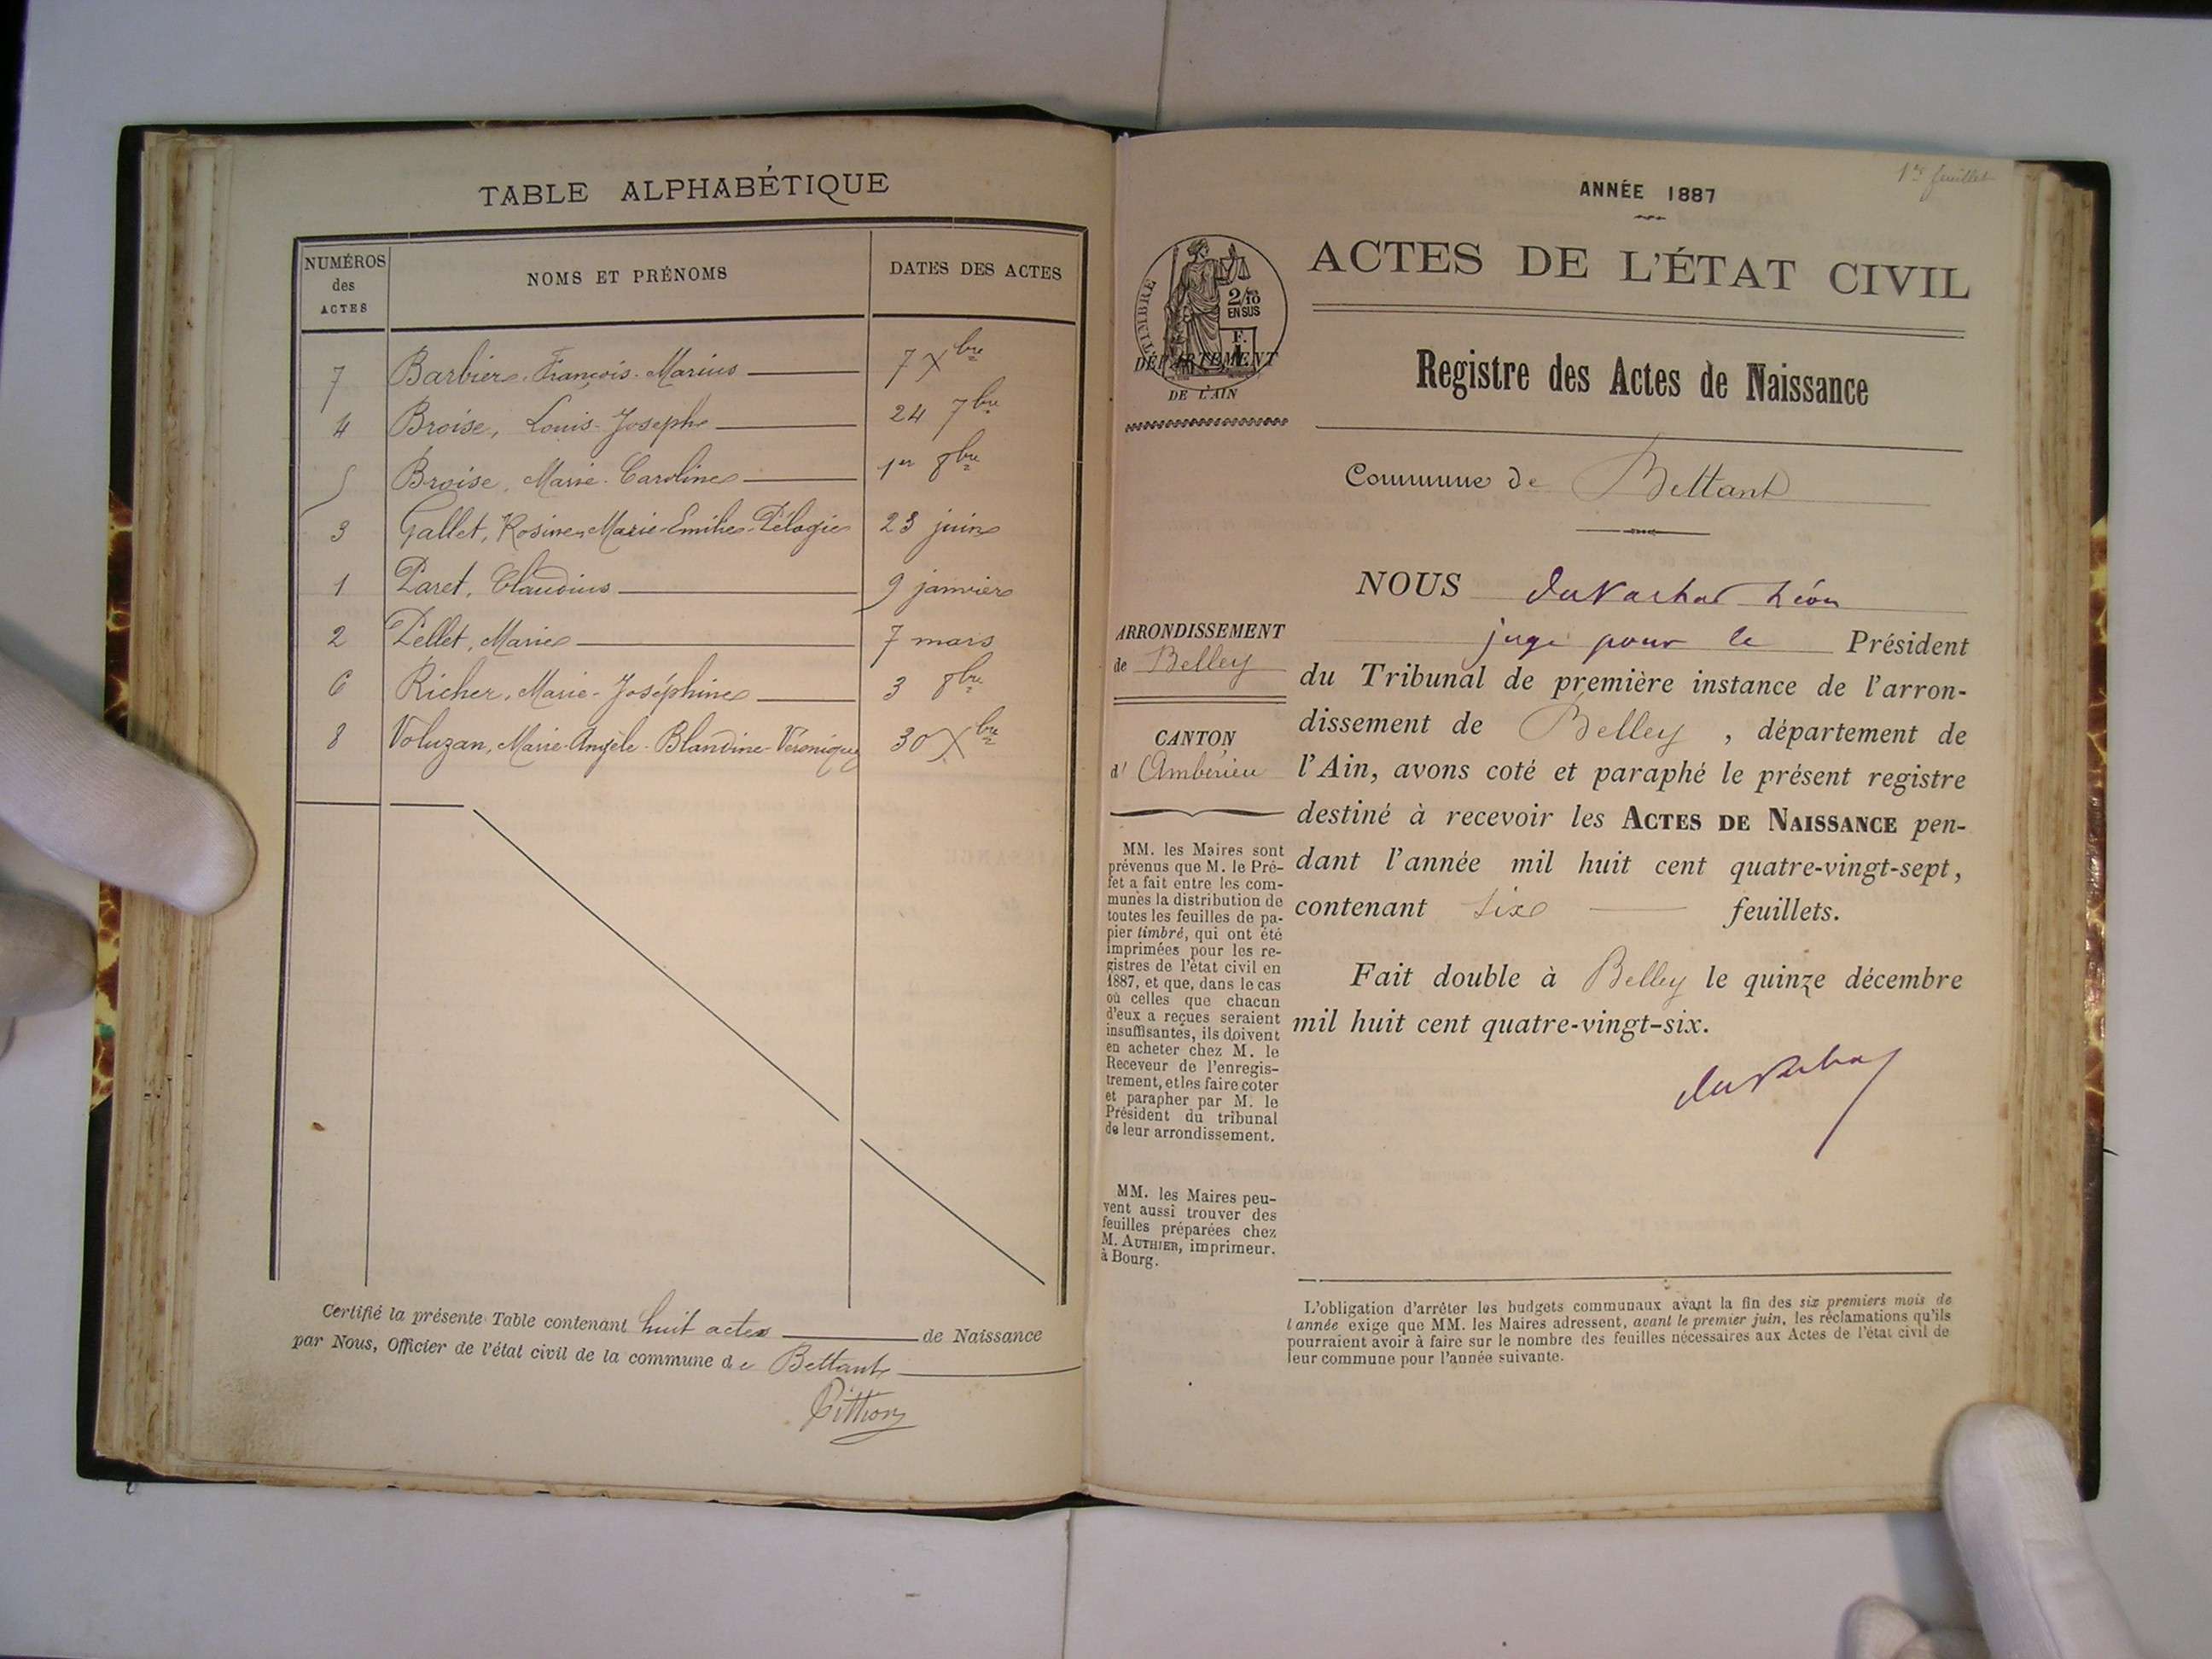 TABLE ALPHABÉTIQUE
NUMÉROS des ACTES NOMS ET PRÉNOMS DATES DES ACTES
7 Barbier, François-Marius 7 Xbre
4 Broise, Louis-Joseph 24 7bre
5 Broise, Marie-Caroline 1er 8bre
3 Gallet, Rosine-Marie-Emilie-Pélagie 23 juin
1 Paret, Claudius 9 janvier
2 Pellet, Marie 7 mars
6 Richer, Marie-Joséphine 3 8bre
8 Voluzan, Marie-Angèle-Blandine-Véronique 30 Xbre
Certifié la présente Table contenant huit actes de Naissance
par Nous, Officier de l'état civil de la commune de Bettant
Pittion
1er feuillet
ANNÉE 1887
ACTES DE L'ÉTAT CIVIL
TIMBRE
2/10
EN SUS
F.
DÉPARTEMENT
DE L'AIN
Registre des Actes de Naissance
Commune de Bettant
ARRONDISSEMENT
de Belley
CANTON
d' Ambérieu
MM. les Maires sont
prévenus que M. le Pré-
fet a fait entre les com-
munes la distribution de
toutes les feuilles de pa-
pier timbré, qui ont été
imprimées pour les re-
gistres de l'état civil en
1887, et que, dans le cas
où celles que chacun
d'eux a reçues seraient
insuffisantes, ils doivent
en acheter chez M. le
Receveur de l'enregis-
trement, et les faire coter
et parapher par M. le
Président du tribunal
de leur arrondissement.
MM. les Maires peu-
vent aussi trouver des
feuilles préparées chez
M. AUTHIER, imprimeur,
à Bourg.
NOUS Léon
juge pour le Président
du Tribunal de première instance de l'arron-
dissement de Belley, département de
l'Ain, avons coté et paraphé le présent registre
destiné à recevoir les ACTES DE NAISSANCE pen-
dant l'année mil huit cent quatre-vingt-sept,
contenant six feuillets.
Fait double à Belley le quinze décembre
mil huit cent quatre-vingt-six.
L'obligation d'arrêter les budgets communaux avant la fin des six premiers mois de
l'année exige que MM. les Maires adressent, avant le premier juin, les réclamations qu'ils
pourraient avoir à faire sur le nombre des feuilles nécessaires aux Actes de l'état civil de
leur commune pour l'année suivante.